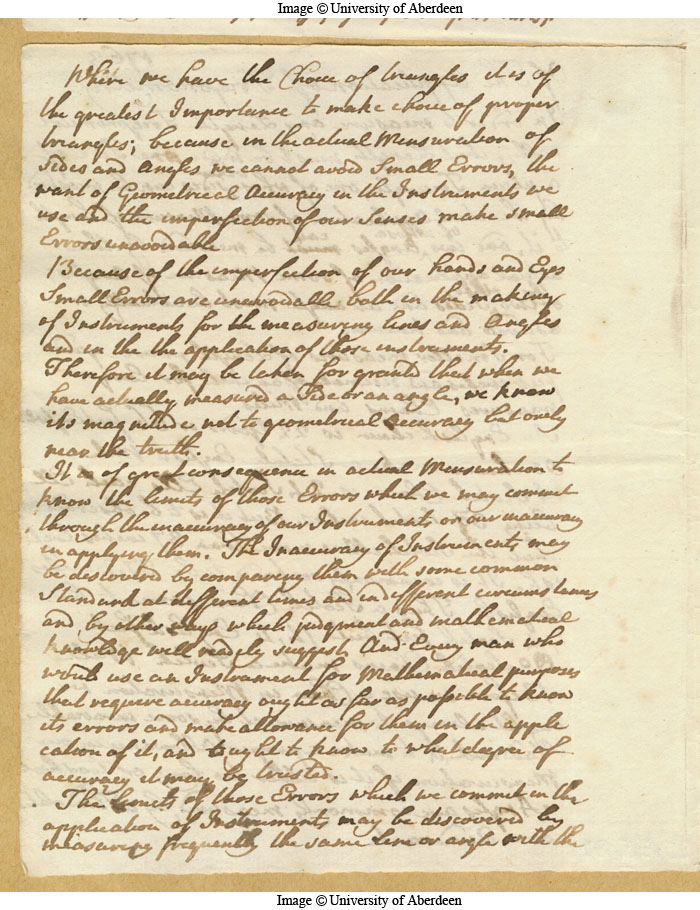 Image © University of Aberdeen
Where we have the Choice of triangles it is of
the greatest Importance to make choice of proper
triangles; because in the actual Mensuration of
Sides and Angles we cannot avoid Small Errors, the
want of Geometrical Accuracy in the Instruments we
use and the imperfection of our Senses make small
Errors unavoidable
Because of the imperfection of our hands and Eyes
Small Errors are unavoidable both in the making
of Instruments for the measuring lines and Angles
and in the the application of those instruments.
Therefore it may be taken for granted that when we
have actually measured a Side or an angle, we know
its magnitude not to geometrical accuracy but onely
near the truth.
It is of great consequence in actual Mensuration to
know the limits of those Errors which we may commit
through the inaccuracy of our Instruments or our inaccuracy
in applying them. The Inaccuracy of Instruments may
be discovered by compareing them with some common
Standard at different times and in different circumstances
and by other ways which judgment and mathematical
knowledge will readyly suggest. And Every man who
would use an Instrument for Mathematical purposes
that require accuracy ought as far as possible to know
its errors and make allowance for them in the appli
cation of it, and ought to know to what degree of
accuracy it may be trusted.
The limits of those Errors which we commit in the
application of Instruments may be discovered by
measureing frequently the same line or angle with the
Image © University of Aberdeen